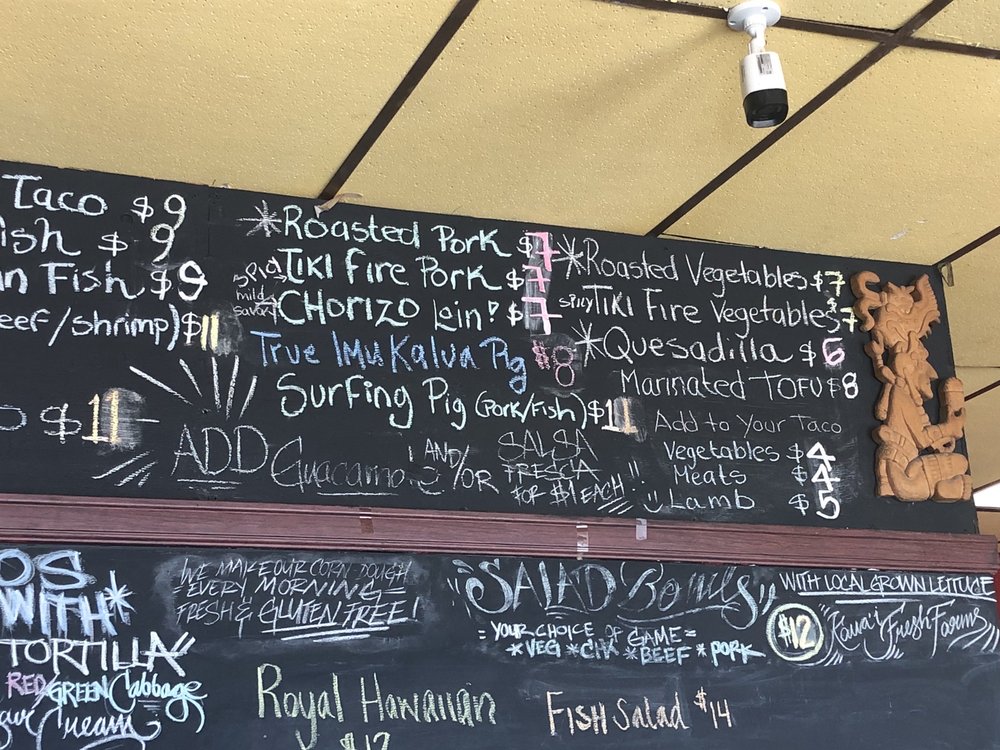 Taco $9
ish $9
n Fish $9
eef/shrimp) $11
$11
*Roasted Pork $7
Tiki Fire Pork $7
mild savory CHORIZO Loin! $7
True Imu Kalua Pig $8
Surfing Pig (Pork/Fish) $11
ADD Guacamo! AND/OR SALSA FRESCA FOR $1 EACH!!
*Roasted Vegetables $7
spicy Tiki Fire Vegetables $7
*Quesadilla $6
Marinated TOFU $8
Add to Your Taco
Vegetables $4
Meats $4
Lamb $5
OS
WITH*
TORTILLA
RED/GREEN Cabbage
Cream
WE MAKE OUR CORN DOUGH
=EVERY MORNING=
FRESH & GLUTEN FREE!
"SALAD Bowls"
=YOUR CHOICE OF GAME=
*VEG *CHK *BEEF *PORK
$12
WITH LOCAL GROWN LETTUCE
Kaua'i Fresh Farms
Royal Hawaiian
$12
Fish Salad $14